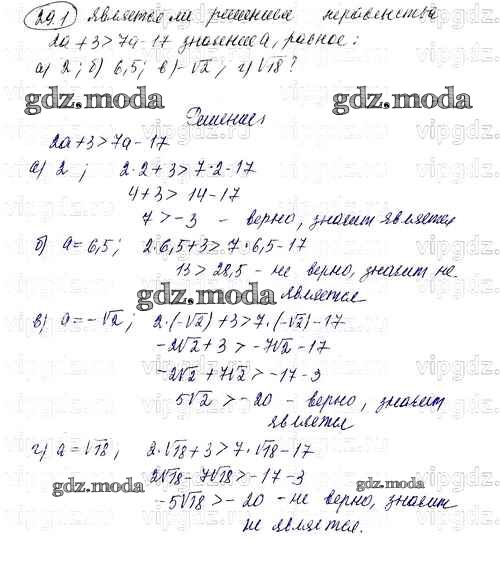 29.1 Является ли решением неравенства
2a+3>7a-17 значение a, равное:
а) 2; б) 6,5; в) -√2; г) √18?
gdz.moda gdz.moda
Решение
2a+3>7a-17
а) 2; 2·2+3>7·2-17
4+3>14-17
7>-3 - верно, значит является
б) a=6,5; 2·6,5+3>7·6,5-17
13>28,5 - не верно, значит не
является
gdz.moda gdz.moda
в) a=-√2; 2·(-√2)+3>7·(-√2)-17
-2√2+3>-7√2-17
-2√2+7√2>-17-3
5√2>-20 - верно, значит
является
г) a=√18; 2·√18+3>7·√18-17
2√18-7√18>-17-3
gdz.moda gdz.moda
-5√18>-20 - не верно, значит
не является.